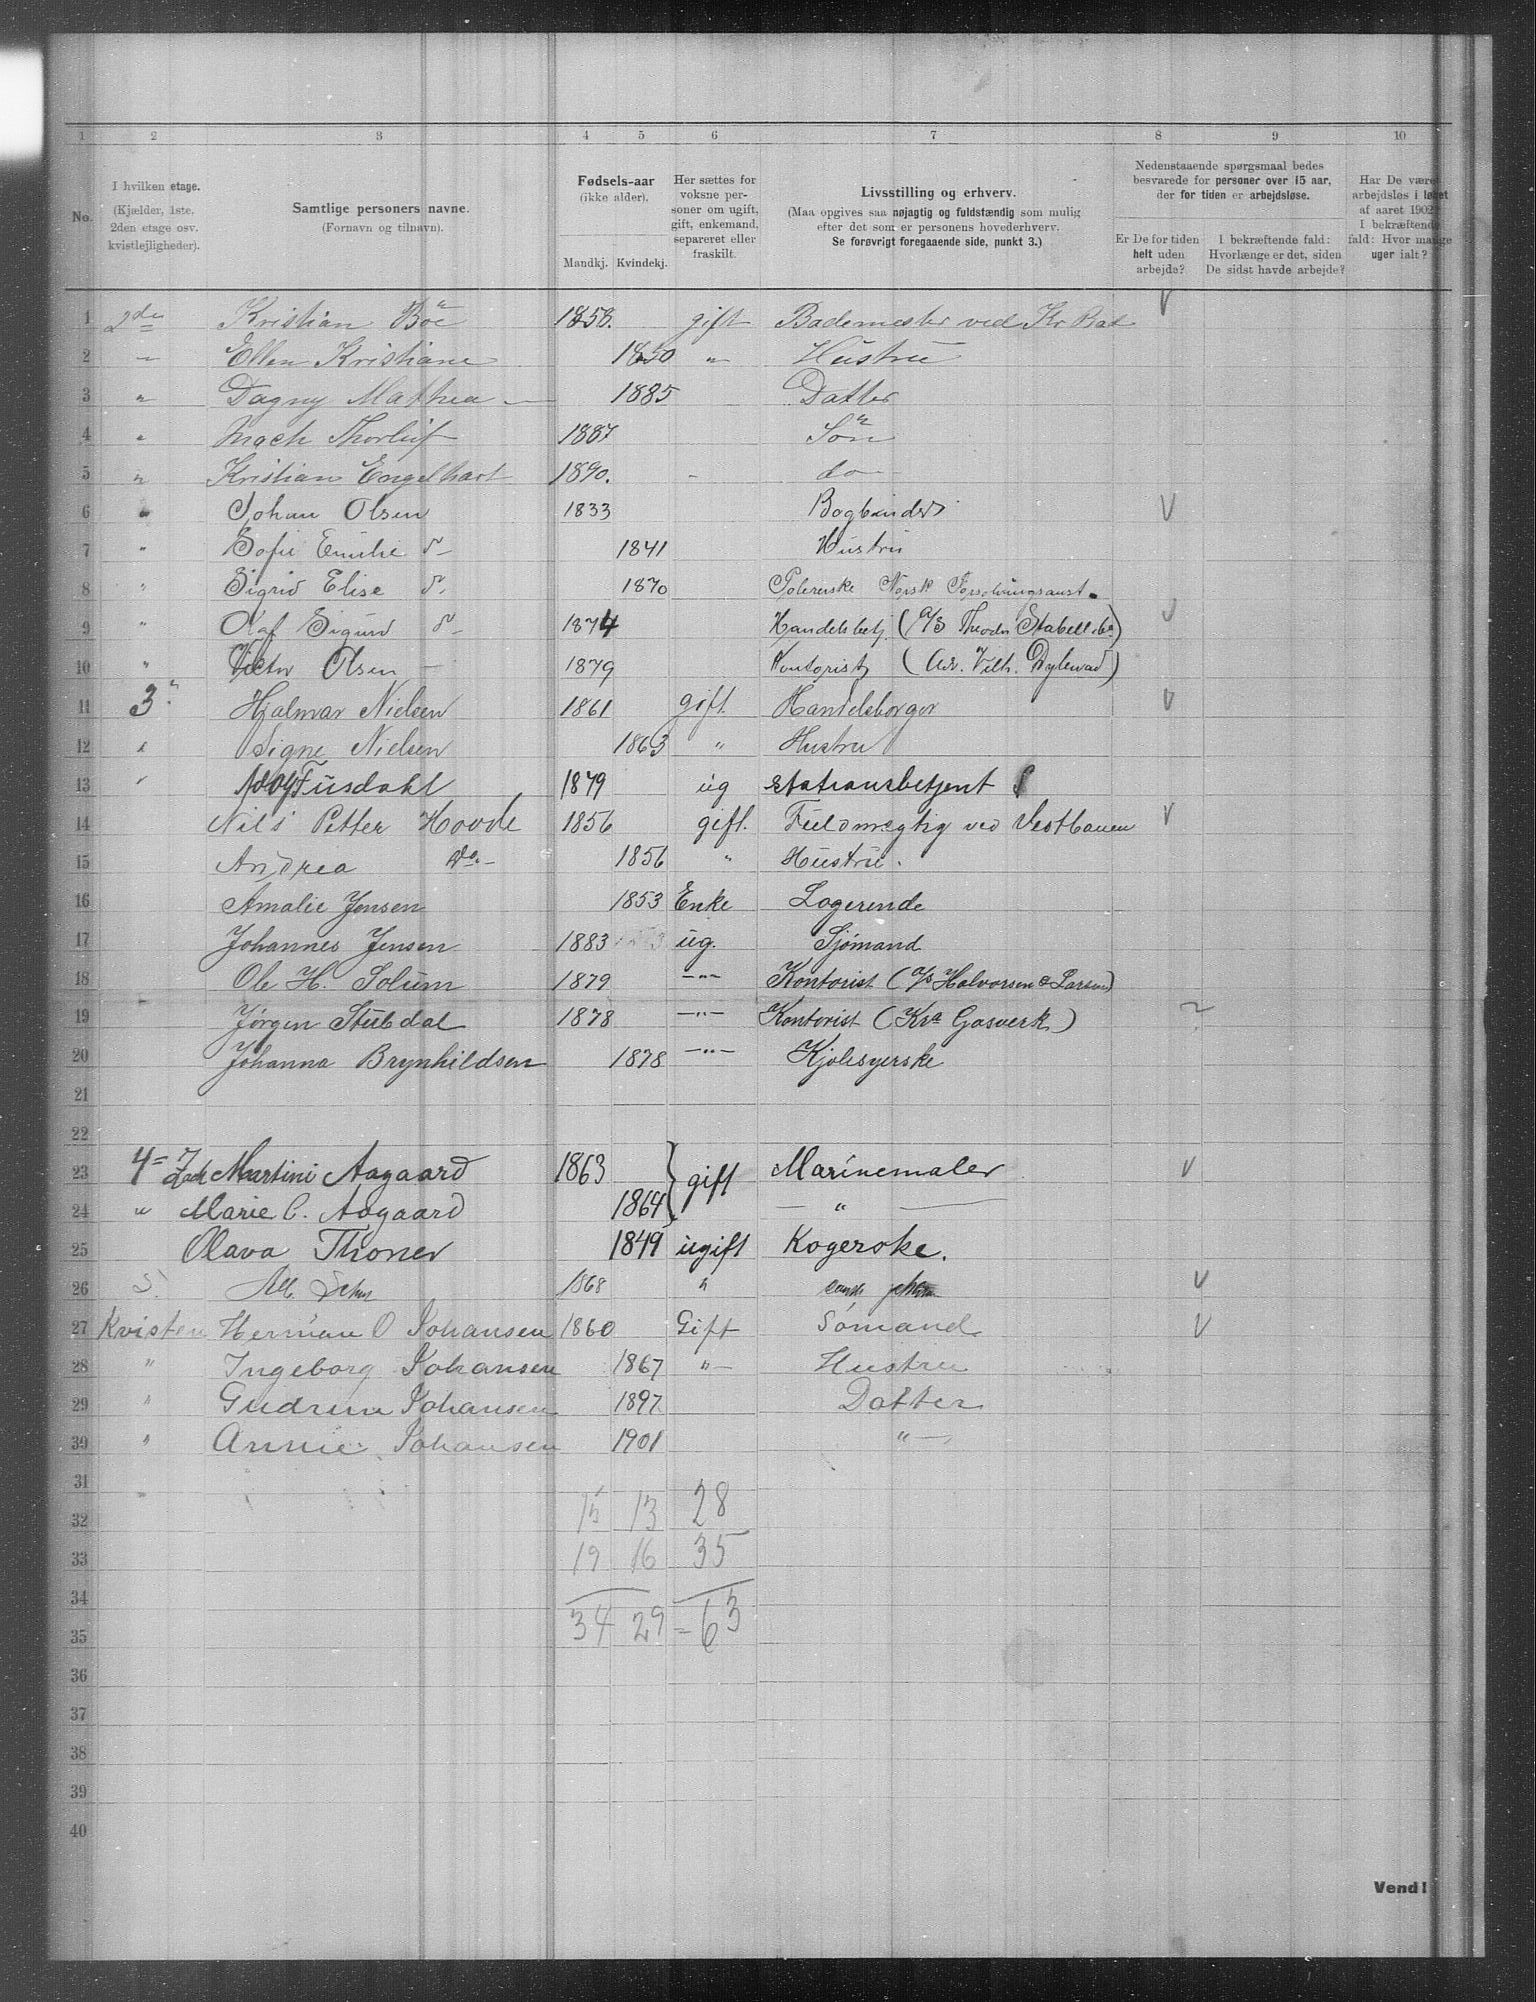 1 2 3 4 5 6 7 8 9 10
No.
I hvilken etage.
(Kjælder, 1ste.
2den etage osv.
kvistlejligheder).
Samtlige personers navne.
(Fornavn og tilnavn).
Fødsels-aar
(ikke alder).
Mandkj. Kvindekj.
Her sættes for
voksne per-
soner om ugift,
gift, enkemand,
separeret eller
fraskilt.
Livsstilling og erhverv.
(Maa opgives saa nøjagtig og fuldstændig som mulig
efter det som er personens hovederhverv.
Se forøvrigt foregaaende side, punkt 3.)
Nedenstaaende spørgsmaal bedes
besvarede for personer over 15 aar,
der for tiden er arbejdsløse.
Er De for tiden
helt uden
arbejde?
I bekræftende fald:
Hvorlænge er det, siden
De sidst havde arbejde?
Har De være
arbejdsløs i løbet
af aaret 1902
I bekræftende
fald: Hvor mange
uger ialt?
1 2den Kristian Böe 1858. gift Bademester ved Kr Bad
2 " Ellen Kristiane 1850 " Hustru
3 " Dagny Mathea — 1885 Datter
4 " Thorleif 1887 Sön
5 " Kristian Engelhart 1890. - do
6 " Johan Olsen 1833 Bogbinder
7 " Sofie Emilie d- 1841 Hustru
8 " Sigrid Elise d- 1870 Polererske Norsk
9 " Olaf Sigurd d- 1874 Handelsbetj. (A/S Theodor Stabell &Co)
10 " Victor Olsen — 1879 Kontorist (Adv. Vilh. Dybwad)
11 3. Hjalmar Nielsen 1861 gift Handelsborger
12 " Signe Nielsen 1863 " Hustru
13 " Fusdahl 1879 ug stationsbetjent
14 Nils Petter Hovde 1856 gift. Fuldmægtig ved Vestbanen
15 Andrea Do.- 1856 " Hustru.
16 Amalie Jensen 1853 Enke Logerende
17 Johannes Jensen 1883 ug. Sjömand
18 Ole H. Solum 1879 —"— Kontorist (A/S Halvorsen & Larsen)
19 Jørgen Stubdal 1878 —"— Kontorist (Kra Gasverk)
20 Johanna Brynhildsen 1878 —"— Kjolesyerske
21
22
23 4= Martini Aagaard 1863 } gift Marinemaler
24 " Marie C. Aagaard 1864 — " —
25 Olava Thoner 1849 ugift Kogerske.
26 5. 1868 "
27 Kvisten Herman O Johansen 1860 Gift Sömand
28 " Ingeborg Johansen 1867 "- Hustru
29 " Gudrun Johansen 1897 Datter
30 " Annie Johansen 1901 "—
31
32 15 13 28
33 19 16 35
34
35 34 29 = 63
36
37
38
39
40
Vend!